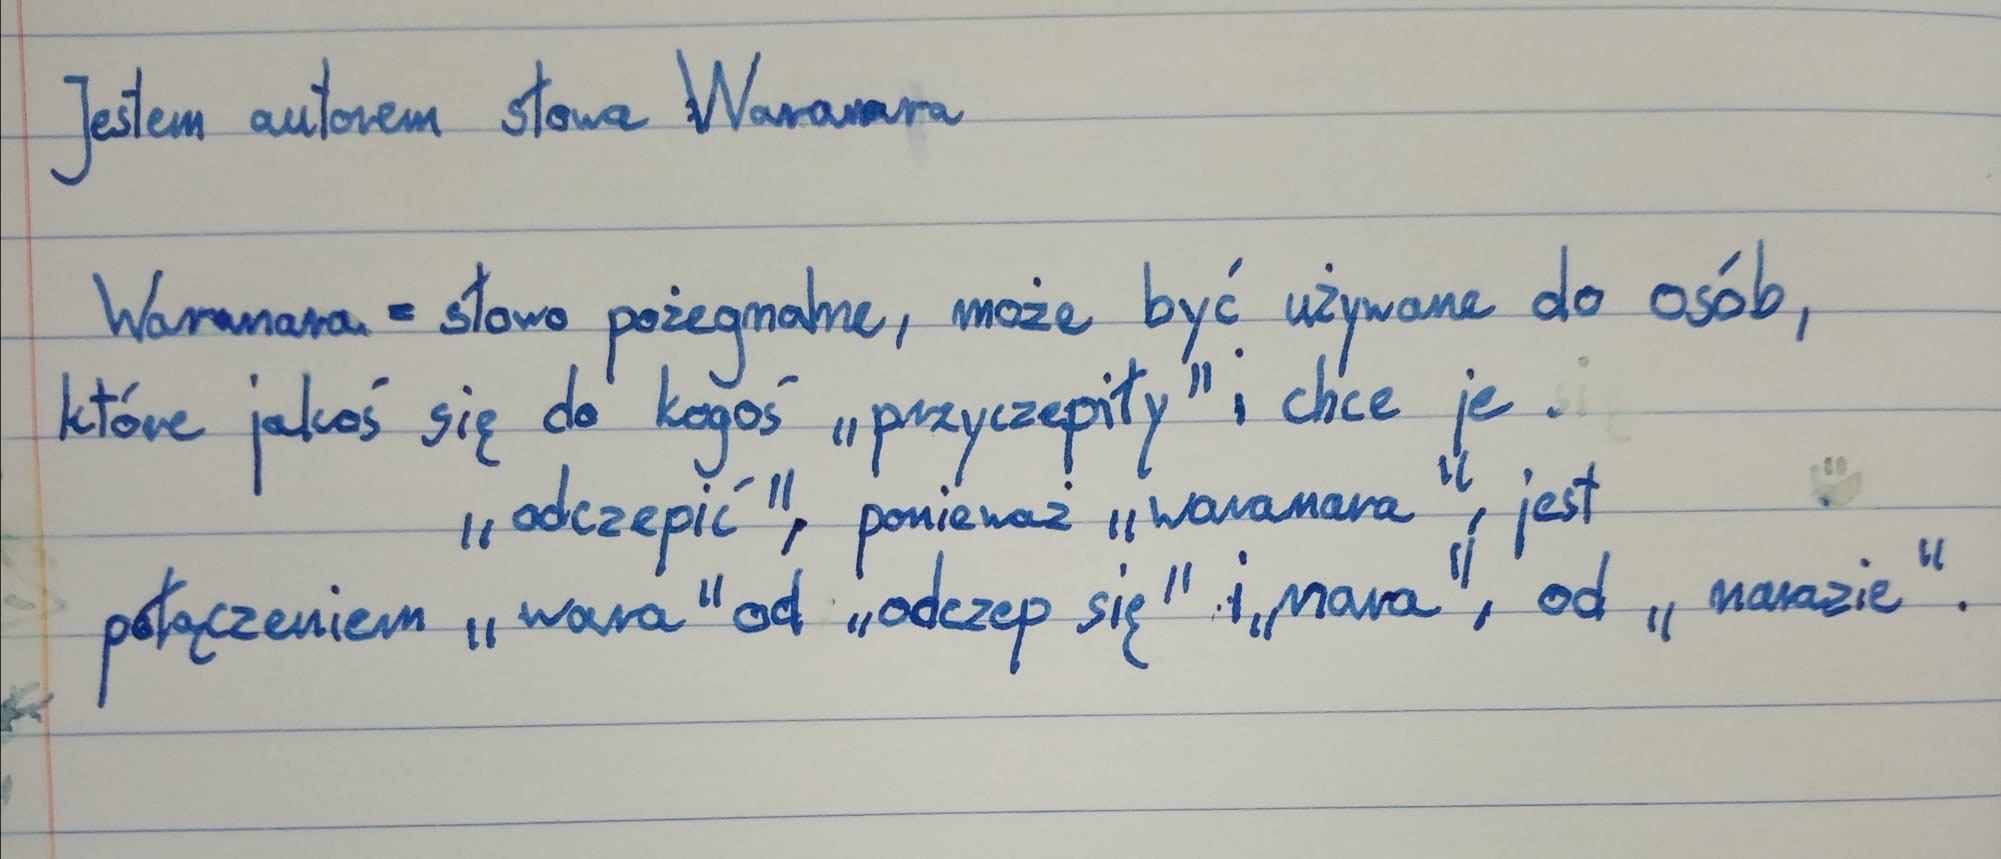 Jestem autorem słowa Waranara
Waranara = słowo pożegnalne, może być używane do osób,
które jakoś się do kogoś „przyczepiły" i chce je .
„odczepić", ponieważ „waranara", jest
połączeniem „wara" od „odczep się" i „nara", od „narazie".